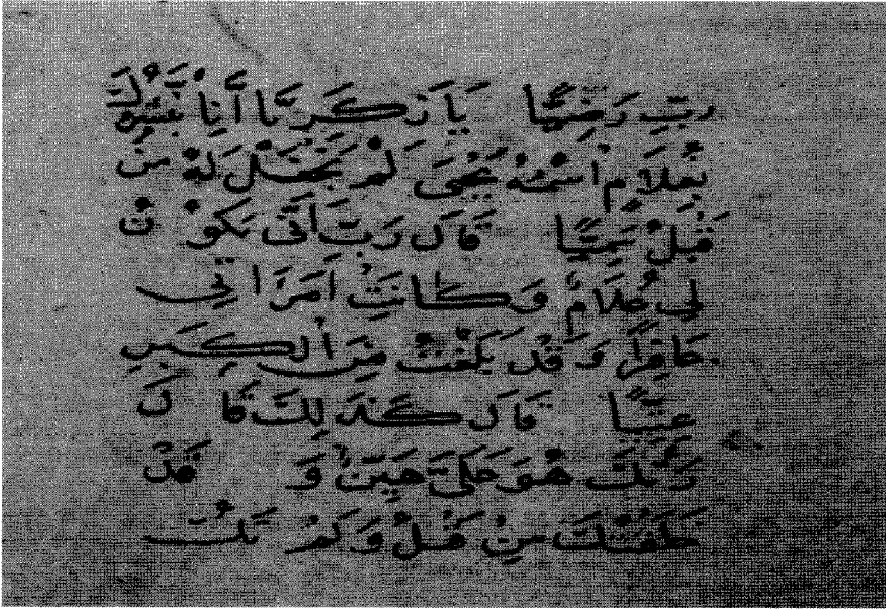 رَبِّ رَضِيًّا يَا زَكَرِيَّا أَنَا نُبَشِّرُكَ
بِغُلَامٍ اسْمُهُ يَحْيَى لَمْ نَجْعَلْ لَهُ مِنْ
قَبْلُ سَمِيًّا قَالَ رَبِّ أَنَّى يَكُونُ
لِي غُلَامٌ وَكَانَتِ امْرَأَتِي
عَاقِرًا وَقَدْ بَلَغْتُ مِنَ الْكِبَرِ
عِتِيًّا قَالَ كَذَلِكَ قَالَ
رَبُّكَ هُوَ عَلَيَّ هَيِّنٌ وَقَدْ
خَلَقْتُكَ مِنْ قَبْلُ وَلَمْ تَكُ